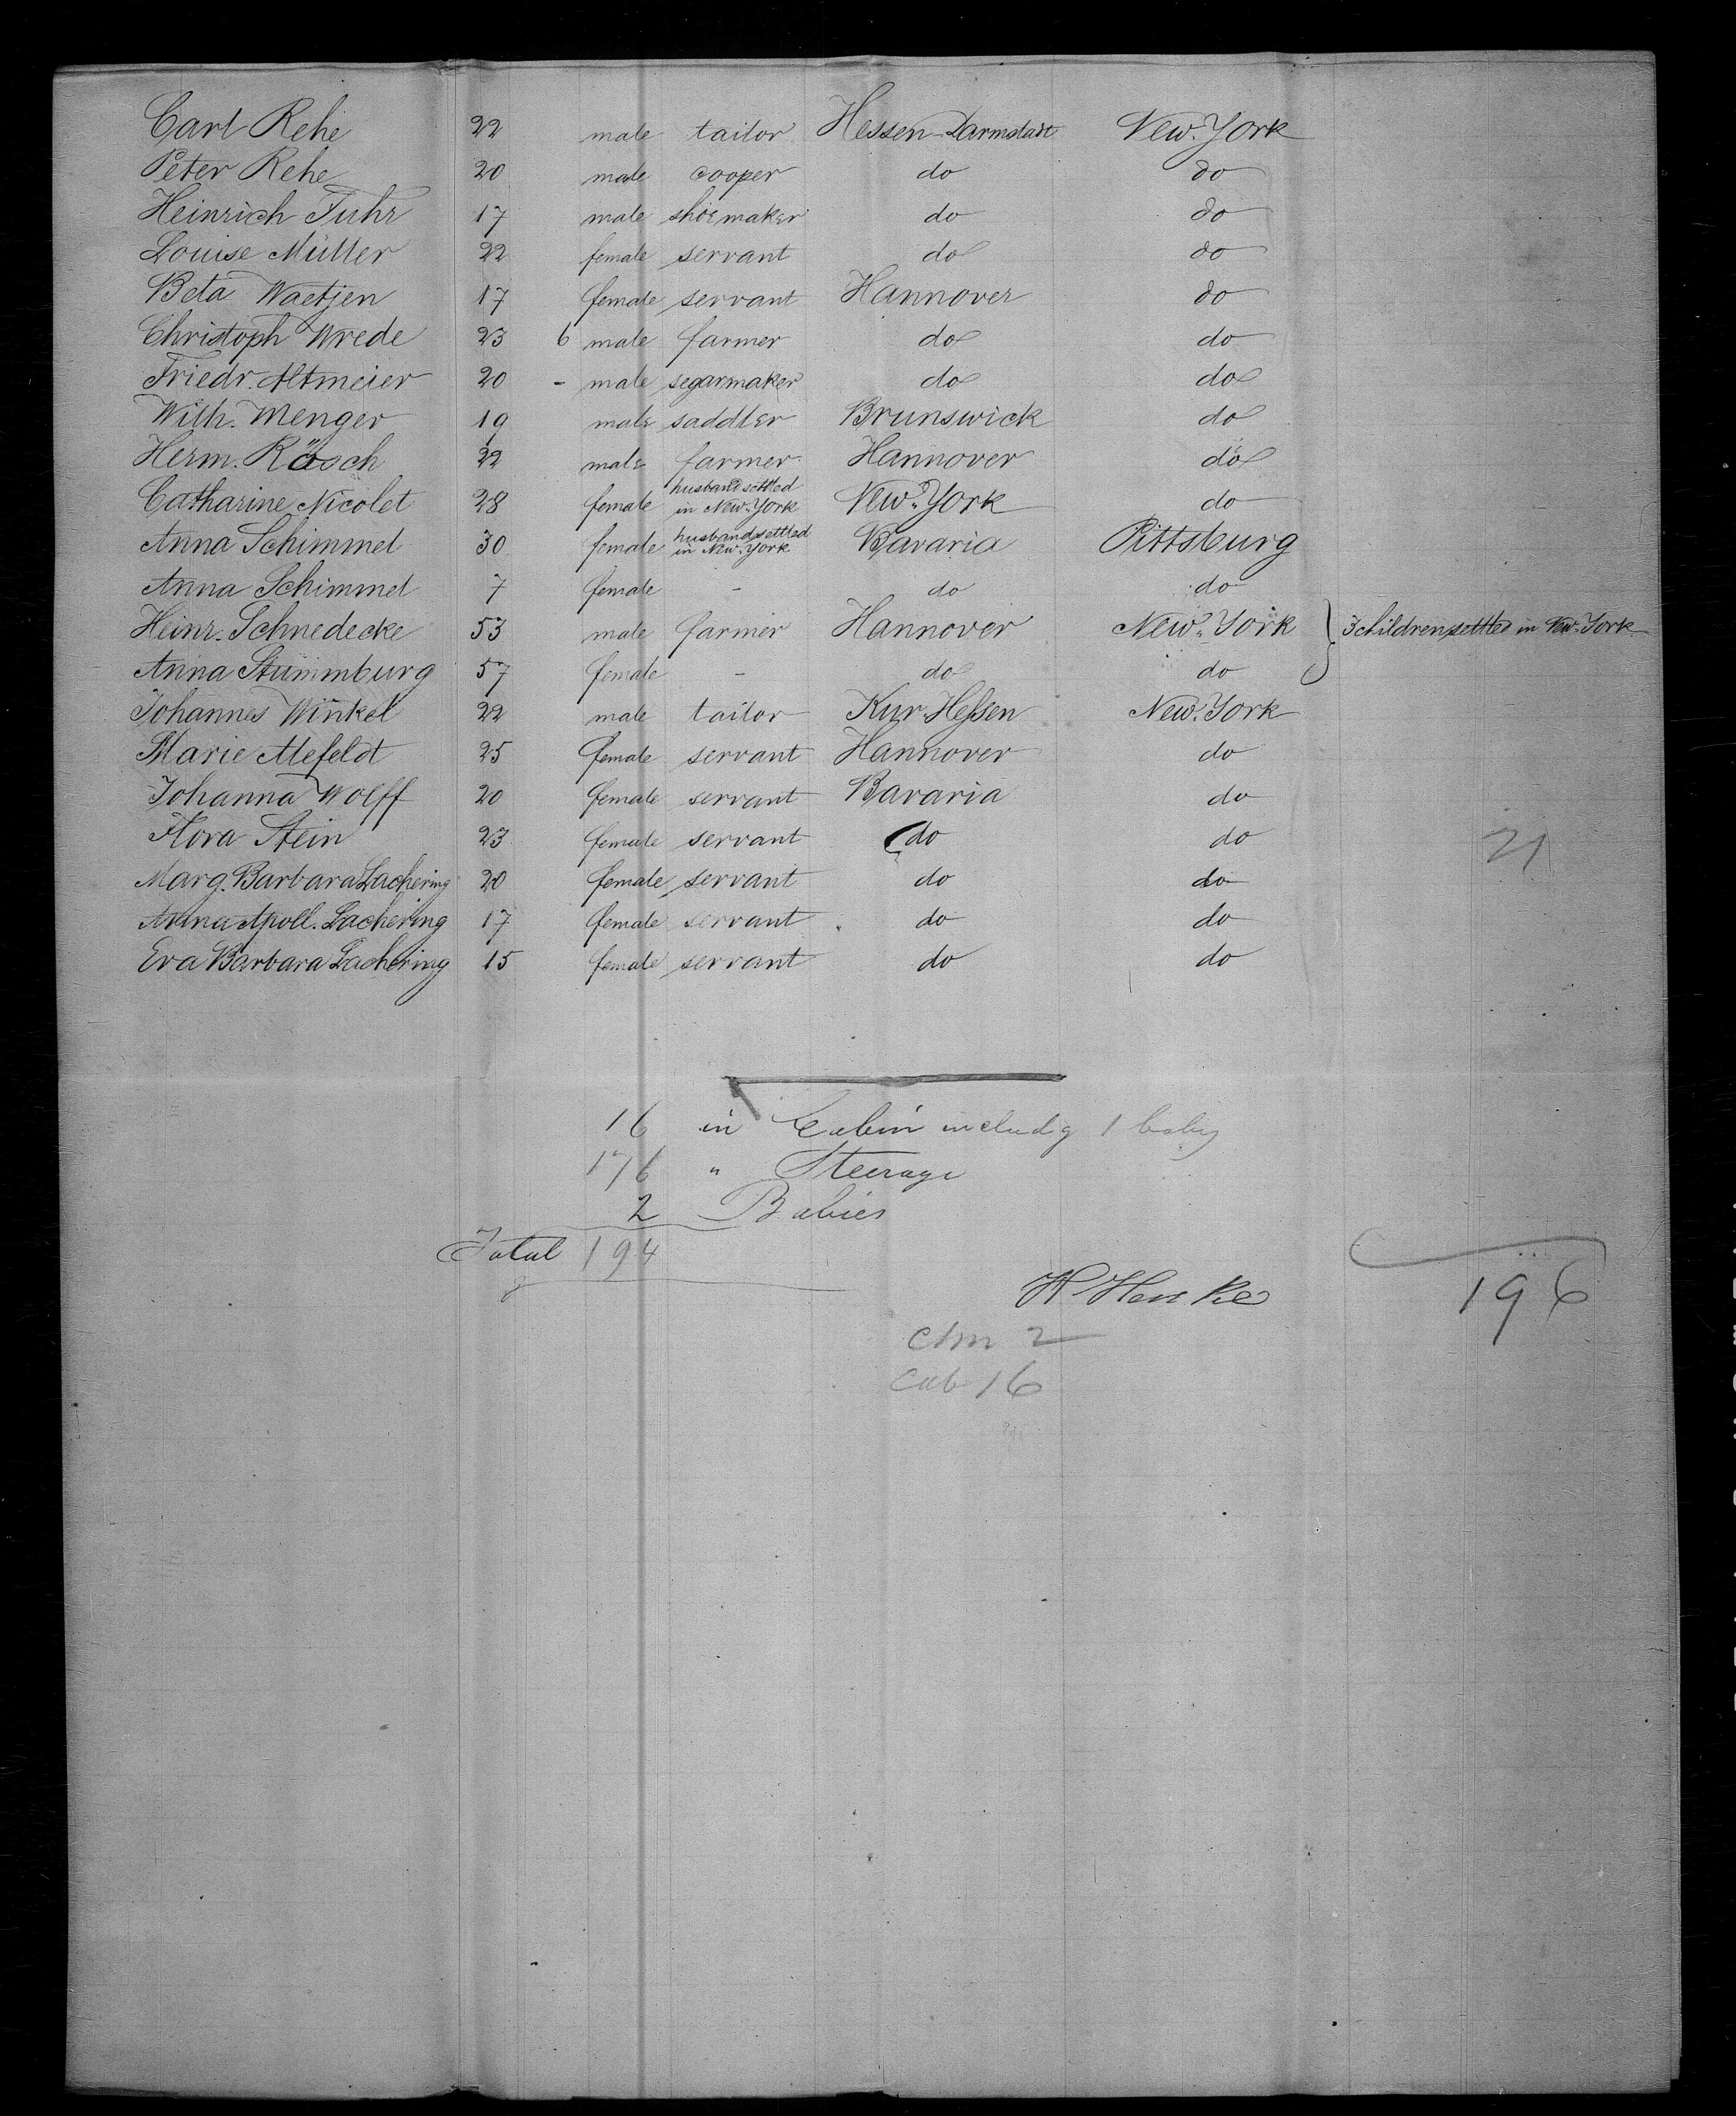 Carl Rehe 22 male tailor Hessen-Darmstadt New-York
Peter Rehe 20 male cooper do do
Heinrich Fuhr 17 male shoemaker do do
Louise Müller 22 female servant do do
Beta Waetjen 17 female servant Hannover do
Christoph Wrede 23 6 male farmer do do
Friedr. Altmeier 20 - male segarmaker do do
Wilh. Menger 19 male saddler Brunswick do
Herm. Rösch 22 male farmer Hannover do
Catharine Nicolet 28 female husband settled in New-York New-York do
Anna Schimmel 30 female husband settled in New-York Bavaria Pittsburg
Anna Schimmel 7 female - do do
Heinr. Schnedecke 53 male farmer Hannover New-York } 3 children settled in New-York
Anna Stummburg 57 female - do do
Johannes Winkel 22 male tailor Kur-Hessen New-York
Marie Alefeldt 25 female servant Hannover do
Johanna Wolff 20 female servant Bavaria do
Flora Stein 23 female servant do do 21
Marg. Barbara Lachering 20 female servant do do
Anna Apoll. Lachering 17 female servant do do
Eva Barbara Lachering 15 female servant do do
16 in Cabin includg 1 baby
176 " Steerage
2 Babies
Total 194
H Henke 196
chn 2
cab 16